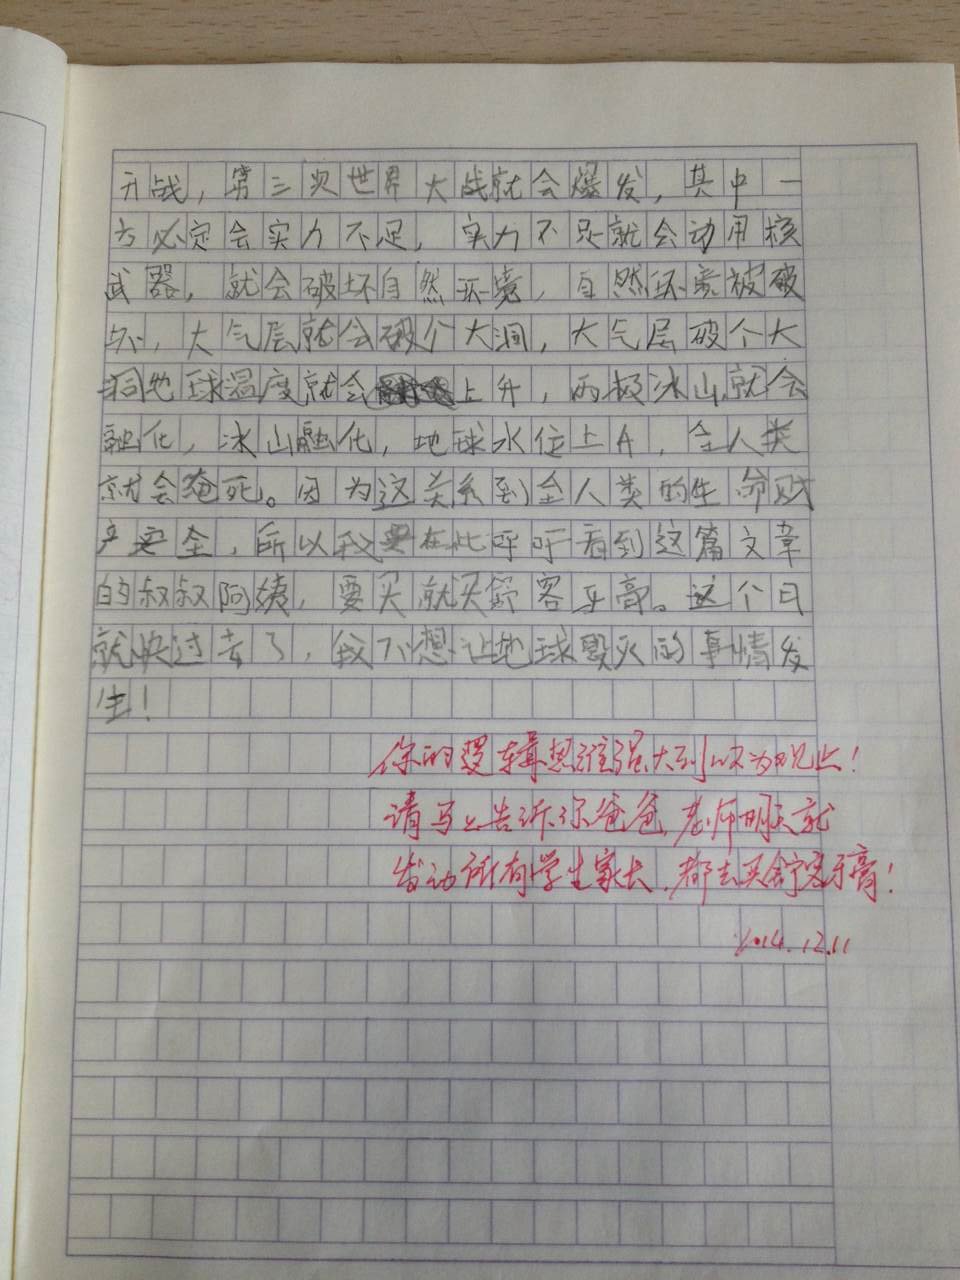 开战，第三次世界大战就会爆发，其中一
方必定会实力不足，实力不足就会动用核
武器，就会破坏自然环境，自然环境被破
坏，大气层就会破个大洞，大气层破个大
洞地球温度就会上升，两极冰山就会
融化，冰山融化，地球水位上升，全人类
就会淹死。因为这关系到全人类的生命财
产安全，所以我要在此呼吁看到这篇文章
的叔叔阿姨，要买就买舒客牙膏。这个日
就快过去了，我不想让地球毁灭的事情发
生！
你的逻辑思维强大到叹为观止！
请马上告诉你爸爸，老师明天就
发动所有学生家长，都去买舒客牙膏！
2014.12.11